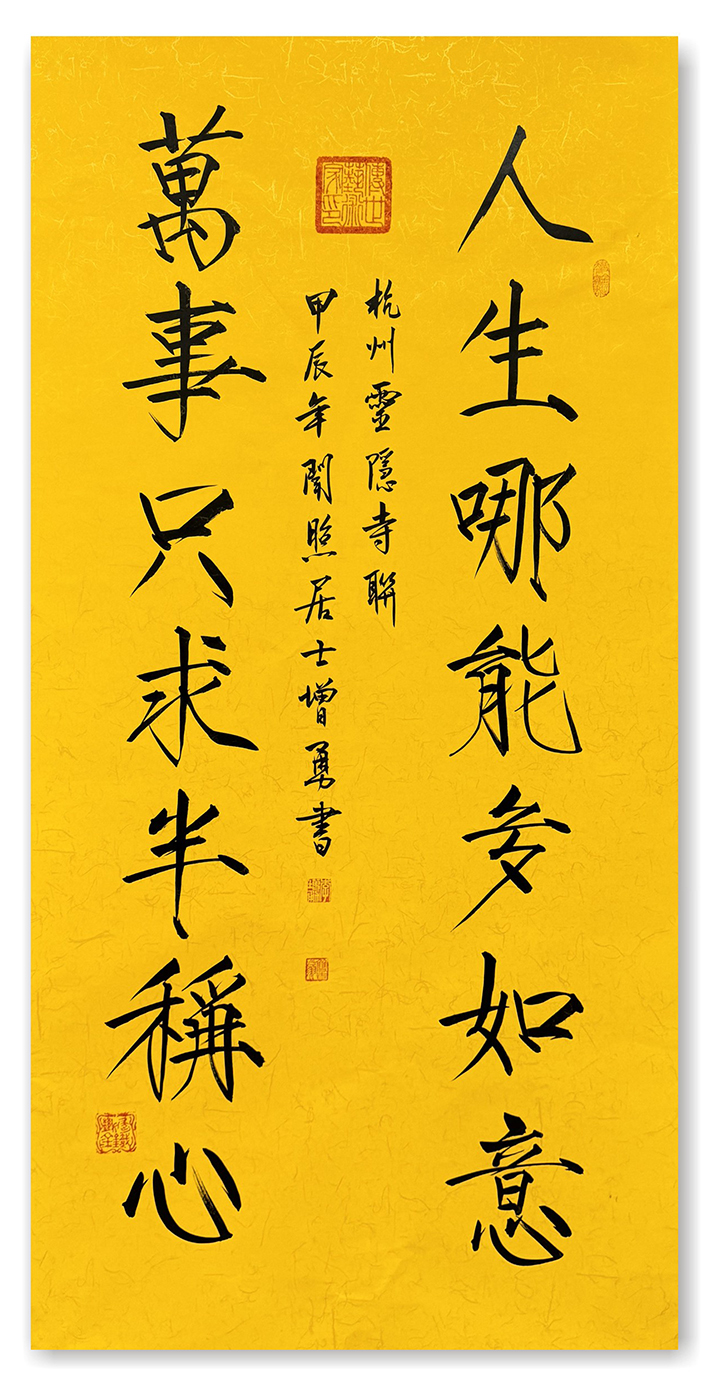 人生哪能多如意
杭州靈隱寺聯
傳世藝術家印
甲辰年聞照居士增勇書
萬事只求半稱心